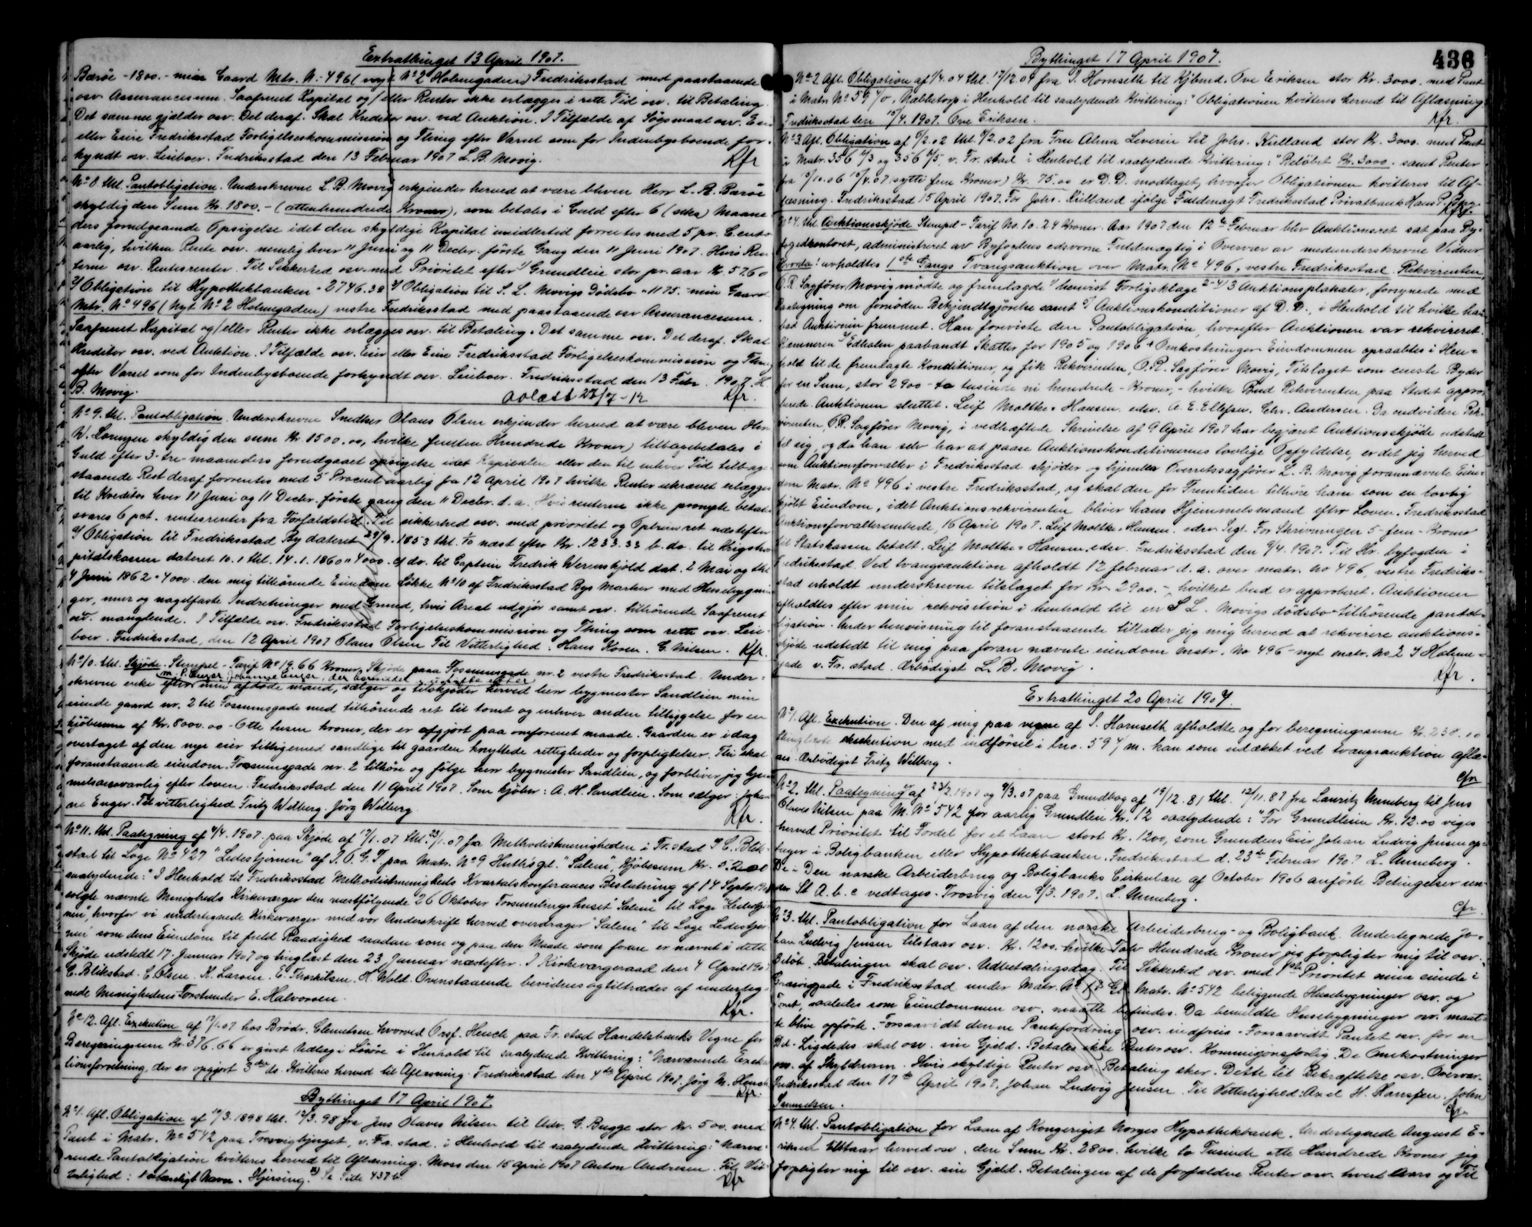 Extrathinget 13 April 1907.
Barøe - 1800.- min Gaard Mtr. N: 496 ( Nº 2 Holmegaden) Fredriksstad med paastaaende
osv Assurancesum. Saafremt Kapital og/eller Renter ikke erlægges i rette Tid osv. til Betaling
Det samme gjælder osv. Det deraf. Skal Kreditor osv. ved Auktion. I Tilfælde af Søgsmaal osv. Eier
eller Eiere Fredriksstad Forligelseskommission og Thing efter Varsel som for Indenbysboende for-
kyndt osv. Leieboer. Fredriksstad den 13 Februar 1907 L B Movig. Kfr
Nº 8 thl. Pantobligation. Underskrevne L. B. Movig erkjender herved at være bleven Herr L. A. Barøe
skyldig den Sum Kr. 1800.- (attenhundrede Kroner), som betales i Guld efter 6 (seks) Maane-
ders forudgaaende Opsigelse idet den skyldige Kapital imidlertid forrentes med 5 pr. Cento
aarlig, hvilken Rente osv. nemlig hver 11 Juni og 11 Decbr. første Gang den 11 Juni 1907. Hvis Ren-
terne osv. Rentesrenter. Til Sikkerhed osv. med Prioritet efter 1/ Grundleie stor pr. aar Kr 5.76
2/ Obligation til Hypothekbanken - 2746.38 3/ Obligation til S. L. Movigs Dødsbo - 1175.- min Gaard
Mtr. Nº 496 (Nyt Nº 2 Holmegaden) vestre Fredriksstad med paastaaende osv Assurancesum.
Saafremt Kapital og/eller Renter ikke erlægges osv. til Betaling. Det samme osv. Det deraf. Skal
Kreditor osv. ved Auktion. I Tilfælde osv. Eier eller Eiere Fredriksstad Forligelseskommission og Thing
efter Varsel som for Indenbysboende forkyndt osv. Leieboer. Fredriksstad den 13 Febr. 1907. L
B. Movig. Kfr.
Nº 9. thl. Pantobligation. Underskrevne Snedker Olaus Olsen erkjender herved at være bleven Herr
skyldig den sum Kr 1500.00, hvilke femten Hundrede Kroner) tilbagebetales i
Guld efter 3-tre-maaneders forudgaaet opsigelse idet Kapitalen eller den til enhver Tid tilbage-
staaende Rest deraf forrentes med 5 Procent aarlig fra 12 April 1907 hvilke Renter ukrævet erlægges
til Kreditor hver 11 Juni og 11 Decbr. første gang den 11 Decbr. d. a. Hvis renterne ikke prompte betales
svares 6 pct. rentesrenter fra Forfaldstid. Til sikkerhed osv. med prioritet og Oprinsret næstefter
1/ Obligation til Fredriksstad By dateret 29/9. 1853 thl.
pitalskassen dateret 10.1 thl. 14.1.1860 - 4000. 4/ do. til Captein Fredrik Werenskjold dat. 2 Mai og thl
4 Juni 1862 - 400. den mig tilhørende Eiendom Løkke Nº 10 af Fredriksstad Bys Marker med Husebygnin-
ger, mur og nagelfaste Indretninger med Grund, hvis Areal udgjør samt osv. tilhørende Saafremt
osv. manglende. I Tilfælde osv. Fredriksstad Forligelseskommission og Thing som rette osv. Leie-
boer. Fredriksstad, den 12 April 1907 Olaus Olsen Til Vitterlighed. Hans Koren. C Nilsen. Kfr.
Nº 10. thl. Skjøde. Stempel-Tarif Nº 19. 66 Kroner. Skjøde paa Fossumsgade nr. 2 vestre Fredriksstad. Under-
skrevne enke efter min afdøde mand, sælger og tilskjøder herved herr bygmester Sandlien min
eiende gaard nr. 2 til Fossumsgade med tilhørende ret til tomt og enhver anden tilliggelse for en
kjøbesum af Kr. 8000.00 - Otte tusen kroner, der er afgjort paa omforenet maade. Gaarden er idag
overtaget af den nye eier tilligemed samtlige til gaarden knyttede rettigheder og forpligtelser. Thi skal
foranstaaende eiendom Fossumsgade nr. 2 tilhøre og følge herr bygmester Sandlien, og forbliver jeg hjem-
melsansvarlig efter loven. Fredriksstad den 11 April 1907. Som kjøber: A. H. Sandlien. Som sælger: Johan-
ne Enger. Til vitterlighed. Fritz Wilberg. Jörg Wilberg Kfr.
Nº 11. thl. Paategning af 4/4. 1907. paa Skjøde af 17/1.07 thl. 23/1.07 fra Methodistmenigheden i Fr.stad
til Loge Nº 427 "Ledestjernen" af I. O. G. T. paa Matr. Nº 9 "Salem", Kjøbesum Kr.
saalydende: "I Henhold til Fredriksstad Methodistmenigheds Kvartalskonferances Beslutning af 14 Septbr.
solgte nævnte Menigheds Kirkeværger den næstfølgende 26 Oktober Forsamlingshuset "Salem" til Loge "Ledestjer-
nen", hvorfor vi undertegnede Kirkeværger med vor Underskrift herved overdrager "Salem" til Loge Ledestjer-
nen som dens Eiendom til fuld Raadighed saadan som og paa den Maade som foran er nævnt i dette
Skjøde udstedt 17. Januar 1907 og tinglæst den 23 Januar næstefter. I Kirkeværgeraad den 4 April 1907
C. Blikstad. E. Olsen. K. Larsen. C. Thorkilsen. H Wold. Ovenstaaende bevidnes og tiltrædes af underteg-
nede Menighedens Forstander E. Halvorsen Kfr.
Nº 12. Afl. Exekution af hos Brødr. Clementsen hvorved Orsf. Heuch paa Fr.stad Handelsbanks Vegne for
Beregningssum Kr. 376.66 er givet Udlæg i Løsøre i Henhold til saalydende Kvittering: "Nærværende Exeku-
tionsforretning, der er opgjort 3die ds. kvitteres herved til Aflæsning. Fredriksstad den 4de April 1907. Jörg M. Heuch. Kfr.
Bythinget 17 April 1907.
Nº 1. Afl. Obligation af 10/3.1898 thl. 12/3.98 fra Jens Olaves Nilsen til Adv. G. Bugge stor Kr. 500. med
Pant i Matr. Nº 542 paa Trosvigbjerget, v. Fr.stad, i Henhold til saalydende Kvittering: "Nærvæ-
rende Pantobligation kvitteres herved til Aflæsning. Moss den 15 April 1907 Anton Andersen. Til Vit-
terlighed: ulæseligt Navn. Hjersing. Se Side 437 b. Kfr
Bythinget 17 April 1907. 436
Nº 2 Afl. Obligation af 1/12.04 thl. 14/12.04 fra T. Hornseth til Kjbmd. Ove Eriksen stor Kr. 3000. med Pant
i Matr. Nº 594/0, Nabbetorp i Henhold til saalydende Kvittering: "Obligationen kvitteres herved til Aflæsning
Fredriksstad den 15/4.1907. Ove Eriksen. Kfr.
Nº 3. Afl. Obligation af 6/2.02 thl. 8/2.02 fra Fru Alma Leverin til Johs. Kielland stor Kr. 3000. med Pant
i Matr. 356 4/3 og 356 4/5 v. Fr.stad i Henhold til saalydende Kvittering: "Beløbet Kr. 3000. samt Renter
fra 15/10.06 15/4.07. sytti fem Kroner) Kr. 75.00 er D.D. modtaget, hvorfor Obligationen kvitteres til Af-
læsning. Fredriksstad 15 April 1907. For Johs. Kielland ifølge Fuldmagt Fredriksstad Privatbank Hans Kfr.
Nº 4. thl. Auktionsskjøde Stempel-Tarif No. 10. 24 Kroner. Aar 1907 den 12te Februar blev Auktionsret sat paa By-
fogedkontoret, administreret av Byfogdens edsvorne Fuldmægtig i Overvær av medunderskrevne Vidner
Hvorda: avholdtes 1ste Gangs Tvangsauktion over Matr. Nº 496, vestre Fredriksstad. Rekvirenten
O.R. Sagfører Movig mødte og fremlagde 1/ henvist Forligsklage 2-4/3 Auktionsplakater, forsynede med
Paategning om fornøden Bekjendtgjørelse samt 5/ Auktionskonditioner af D.D. i Henhold til hvilke han
bad Auktionen fremmet. Han foreviste den Pantobligation, hvorefter Auktionen var rekvireret.
Kemneren Edholm paabandt Skatter for 1905 og 1906 + Omkostninger. Eiendommen opraabtes i Hen-
hold til de fremlagte Konditioner og fik Rekvirenten, O.R. Sagfører Movig, Tilslaget som eneste Byder
for en Sum, stor 2900 - to tusinde ni hundrede - Kroner, - hvilke Bud Rekvirenten paa Stedet appro-
berede. Auktionen sluttet. Leif Moltke-Hansen. edsv. O. E. Ellefsen. Chr. Andersen. Da endvidere Rek-
virenten, O.R. Sagfører Movig, i vedhæftede Skrivelse af 9 April 1907 har begjæret Auktionsskjøde udstedt
til sig, og da han selv har at paase Auktionskonditionernes lovlige Opfyldelse, er det jeg herved
som Auktionsforvalter i Fredriksstad skjøder og hjemler Overretssagfører L. B. Movig forannævnte Eien-
dom Matr. Nº 496 i vestre Fredriksstad, og skal den for Fremtiden tilhøre ham som en lovlig
kjøbt Eiendom, idet Auktionsrekvirenten bliver hans Hjemmelsmand efter Loven. Fredriksstad
Auktionsforvalterembede, 16 April 1907. Leif Moltke Hansen. edsv. Sgt. For Skrivningen 5-fem-Kroner
til Statskassen betalt. Leif Moltke-Hansen. edsv. Fredriksstad den 9/4.1907. Til Hr. byfogden i
Fredriksstad. Ved tvangsauktion afholdt 12 februar d. a. over matr. no 496, vestre Fredriks-
stad erholdt underskrevne tilslaget for Kr. 2900.-, hvilket bud er approberet. Auktionen
afholdtes efter min rekvisition i henhold til en S L. Movigs dødsbo tilhørende pantob-
ligation. Under henvisning til foranstaaende tillader jeg mig herved at rekvirere auktions-
skjøde udstedt til mig paa foran nævnte eiendom matr. No 496 - nyt matr. No 2 I Holme-
gade v. Fr. stad. Ærbødigst L. B. Movig. Kfr.
Extrathinget 20 April 1907.
Nº 1. Afl. Exekution. Den af mig paa vegne af T. Hornseth afholdte og for beregningssum Kr. 238.10
tinglæste exekution med indførsel i bno. 594 m. kan som udækket ved tvangsauktion aflæ-
ses. Ærbødigst Fritz Wilberg. Cfr
Nº 2. thl. Paategning af 23/2 1907 og 9/3.07 paa Grundbog af 19/12.81 thl. 12/11.87 fra Lauritz Unneberg til Jens
Olaves Nilsen paa M. Nº 542 for aarlig Grundleie Kr. 12 saalydende: "For Grundleien Kr. 12.00 viges
herved Prioritet til Fordel for et Laan stort Kr. 1200, som Grundens Eier Johan Ludvig Jensen op-
tager i Boligbanken eller Hypothekbanken. Fredriksstad d. 23de Februar 1907 L. Unneberg.
De i - Den norske Arbeiderbrug og Boligbanks Cirkulære af October 1906 anførte Betingelser un-
der Lit A. b. c vedtages. Trosvig den 9/3.1907. L. Unneberg. Cfr.
Nº 3. thl. Pantobligation for Laan af den norske Arbeiderbrug- og Boligbank. Undertegnede Jo-
han Ludvig Jensen tilstaar osv. Kr. 1200. hvilke Tolv Hundrede Kroner jeg forpligter mig til osv.
Beløb. Betalingen skal osv. Udbetalingsdag. Til Sikkerhed osv. med 1ste Prioritet mine eiende i
i Fredriksstad under Matr. Nº Gl. Matr. Nº 542 beliggende Husebygninger osv. og
Tomt, saaledes som Eiendommen osv. maatte befindes. Da bemeldte Husebygninger osv. maat-
te blive opførte. Forsaavidt denne Pantefordring osv. indfries. Forsaavidt Pantet osv. for en
Del. Ligeledes skal osv. sin Gjeld. Betales ikke Renter osv. Kommunens forlig. De Omkostninger
osv. af Skyldneren. Hvis skyldige Renter osv. Betaling sker. Dette til Bekræftelse osv. Overvær.
Fredriksstad den 17de April 1907. Johan Ludvig Jensen. Til Vitterlighed: Axel H. Hansen. John
Svendsen. Cfr.
Nº 4. thl. Pantobligation for Laan af Kongeriget Norges Hypothekbank. Undertegnede August E-
riksen tilstaar herved osv. den Sum Kr. 2800. hvilke to Tusinde otte Hundrede Kroner jeg
forpligter mig til osv. sin Gjæld. Betalingen af de forfaldne Renter osv. hvert Aars og Til